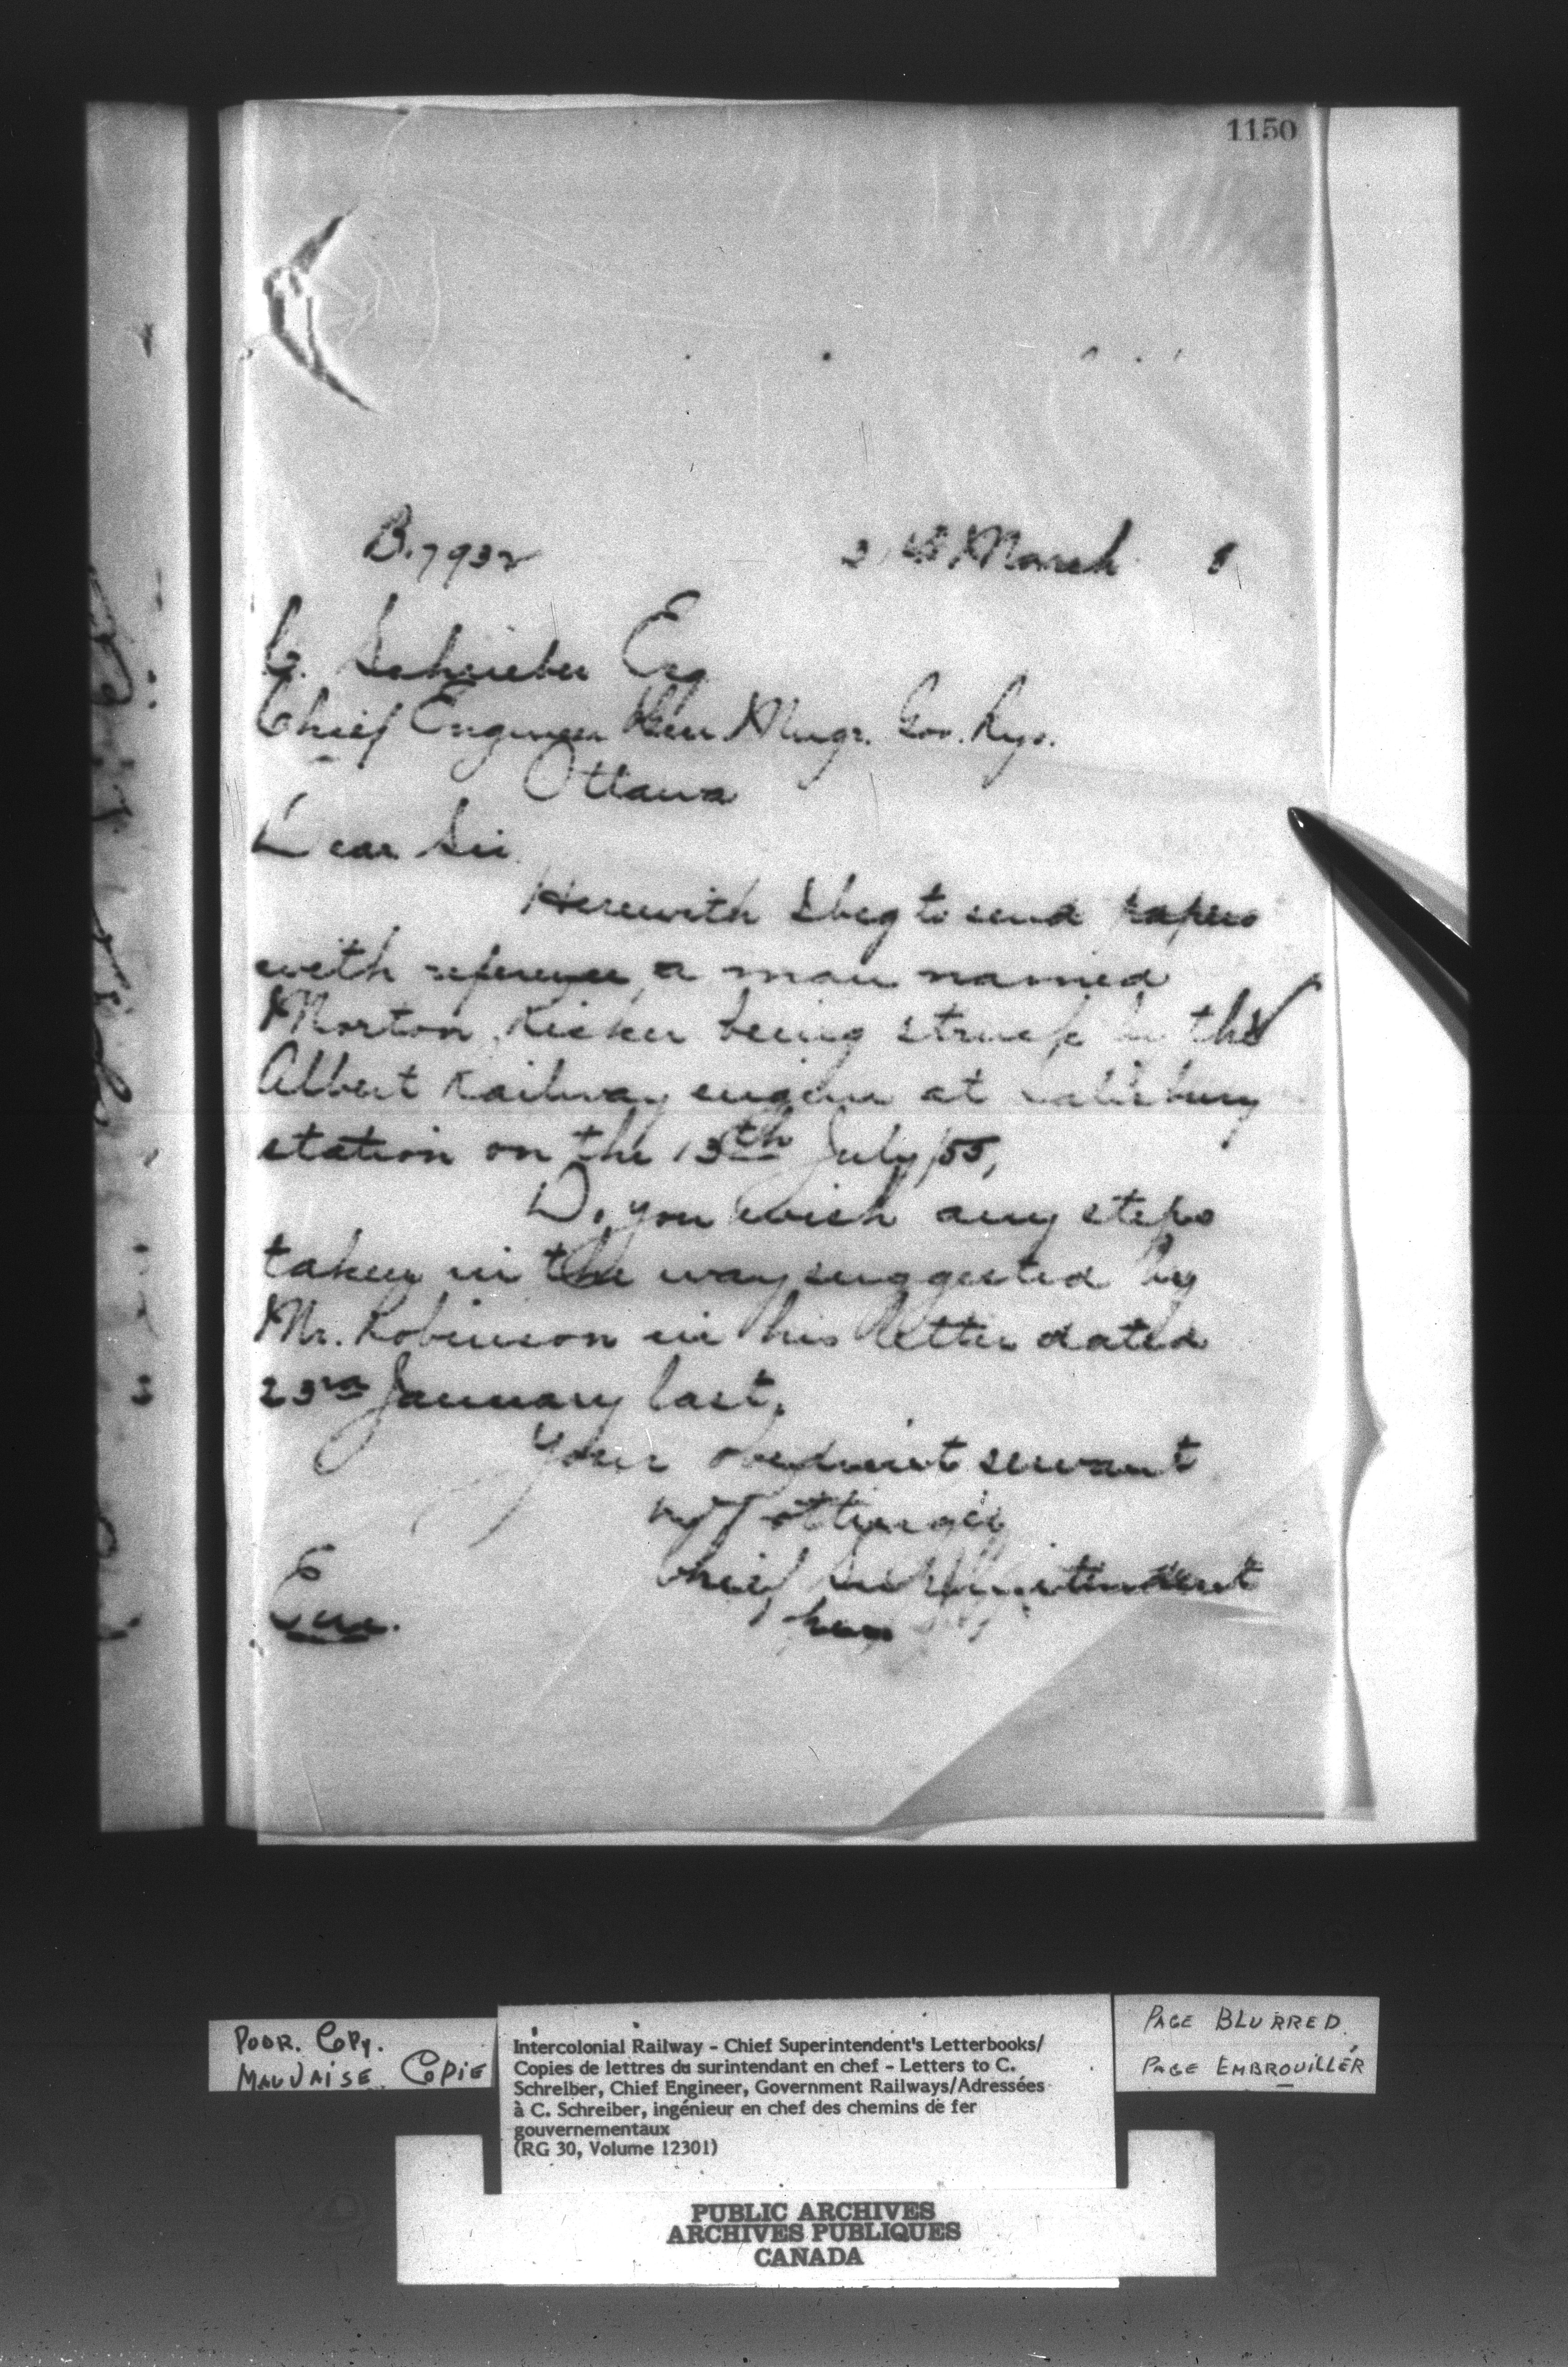 1150
B.7932 March
C. Schrieber Esq
Chief Engineer Gen Mngr. Gov. Rys.
Ottawa
Dear Sir
Herewith I beg to send papers
with reference, a man named
Morton being struck by the
Albert Railway engine at Salisbury
station on the 13th July
Do you wish any steps
taken in the way suggested by
Mr. Robinson in his letter dated
23rd January last.
Your obedient servant
Pottinger
Chief Superintendent
Enc.
POOR. COPY.
MAUVAISE COPIE
Intercolonial Railway - Chief Superintendent's Letterbooks/
Copies de lettres du surintendant en chef - Letters to C.
Schreiber, Chief Engineer, Government Railways/Adressées
à C. Schreiber, ingénieur en chef des chemins de fer
gouvernementaux
(RG 30, Volume 12301)
PAGE BLURRED
PAGE EMBROUILLÉR
PUBLIC ARCHIVES
ARCHIVES PUBLIQUES
CANADA